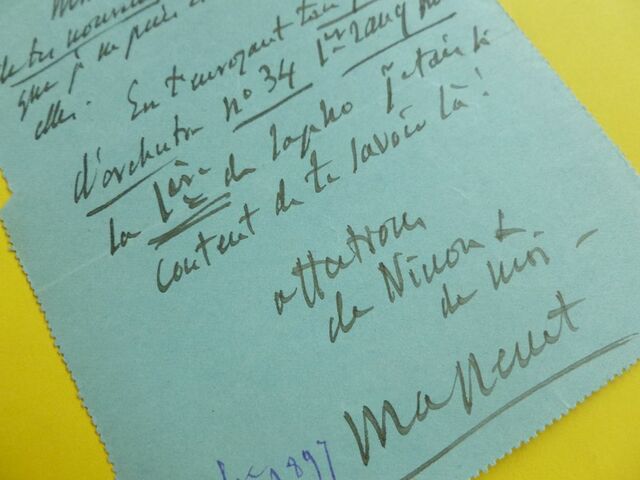 de tes nouvelles
que je ne puis
elles. En t'envoyant ton
d'orchestre n° 34 1er rang pr
la 1ère de Sapho j'étais si
content de te savoir là !
affections
de Ninon &
de moi —
Massenet
1897